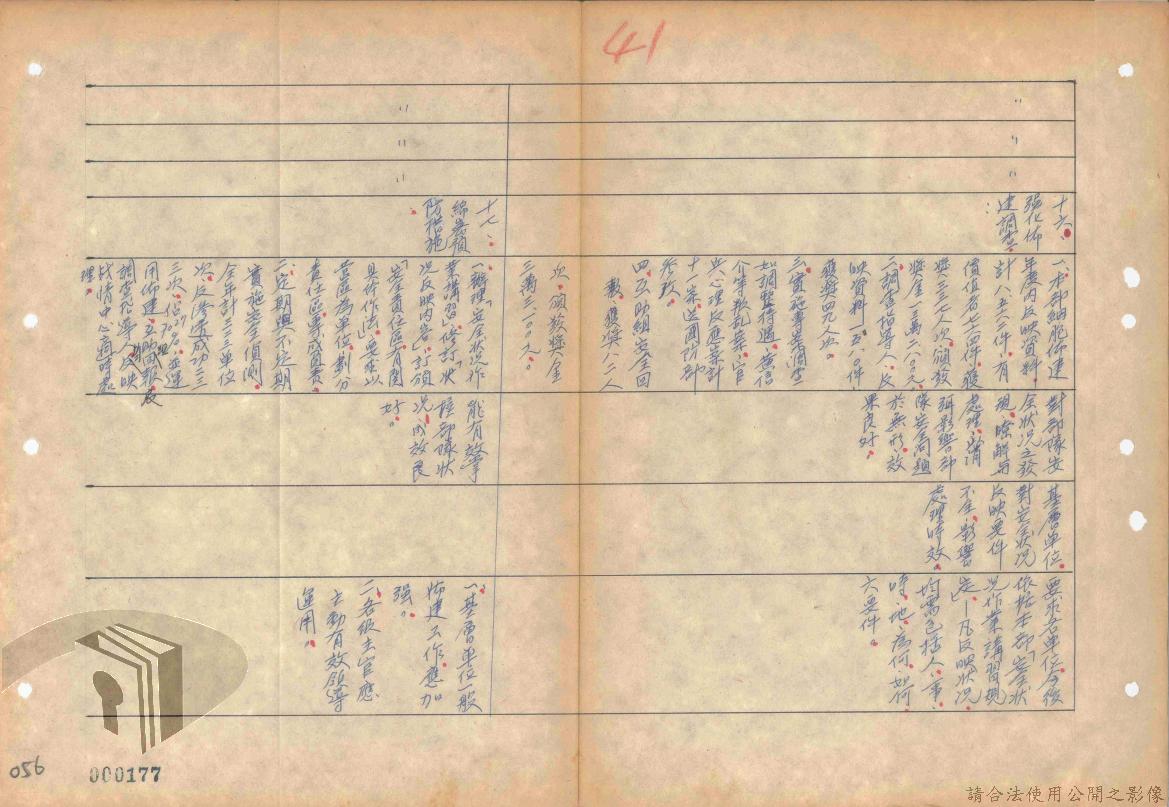 41
〃
〃
〃
十六、
強化佈
建調查：
一、本部細胞佈建
年度內反映資料
計八、五六二件，有
價值者七十四件，獲
獎三三七人次，頒發
獎金二萬二八〇〇元
二、調查指導人，反
映資料一五八〇件
獲獎四九人次。
三、實施專案調查
如調整待遇、黃信
介等叛亂案、官
兵心理反應等計
十案，送國防部
參考。
四、互助組安全回
報，獲獎八二人
次，頒發獎金
三萬三、一〇〇元。
對部隊安
全狀況之發
現、瞭解與
處理，消
弭影響部
隊安全問題
於無形，效
果良好。
基層單位
對安全狀況
反映要件
不全，影響
處理時效。
要求各單位今後
依據本部「安全狀
況作業講習規
定」—凡反映狀況，
均需包括人、事、
時、地、為何、如何
六要件。
〃
〃
〃
十七、
綿密偵
防措施
一、辦理「安全狀況作
業講習」，修訂「狀
況反映內容」，訂頒
「安全責任區有關
具體作法」，要求以
營區為單位，劃分
責任區，專責
二、定期與不定期
實施安全偵測
全年計三三單位
次，反滲透成功三三
三次，並運
用佈建、互助回報、反
調查指導人反映
戰情中心適時處
理。
能有效掌
握部隊狀
況，成效良
好。
一、基層單位一般
佈建工作，應加
強。
二、各級主官應
主動有效領導
運用。
056
000177
請合法使用公開之影像